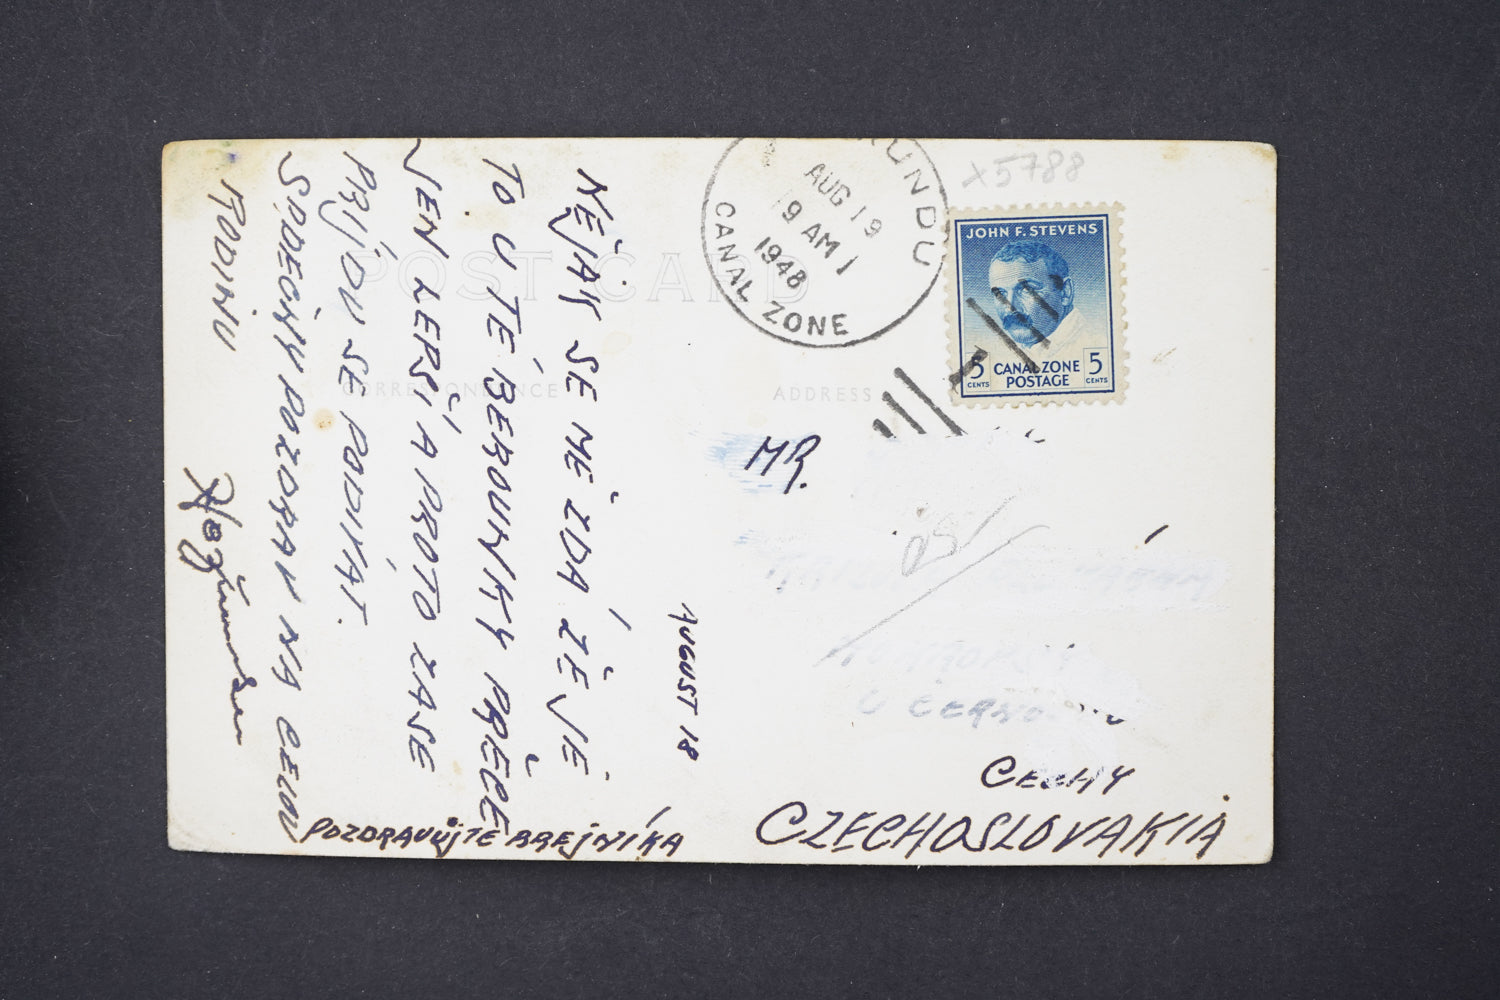 AUGUST 18
NĚJAK SE MĚ ZDÁ ŽE JE
TO U TÉ BEROUNKY PŘECE
JEN LEPŠÍ A PROTO ZASE
PŘIJDU SE PODÍVAT.
SRDEČNÝ POZDRAV NA CELOU
RODINU
POZDRAVUJTE BREJNÍKA
POST CARD
CORRESPONDENCE
ADDRESS
AUG 19
9 AM
1948
CANAL ZONE
X5788
JOHN F. STEVENS
5 CENTS
CANAL ZONE
POSTAGE
5 CENTS
MR.
ČECHY
CZECHOSLOVAKIA